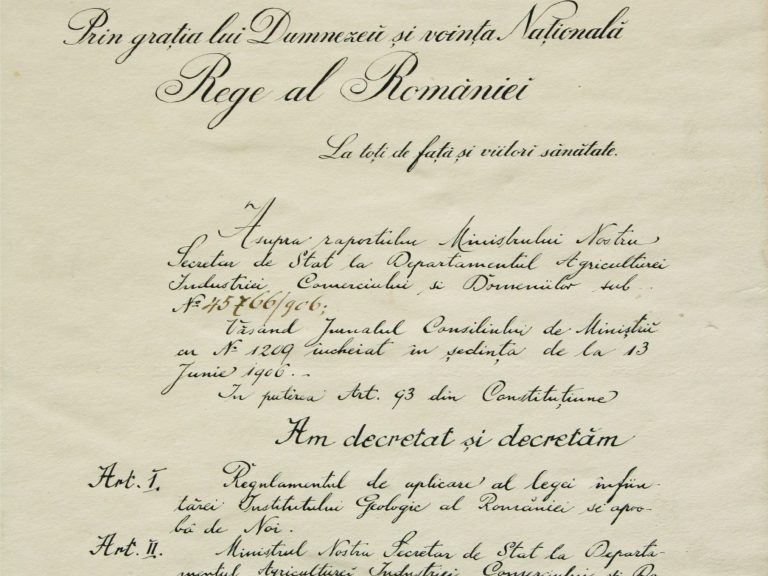 Prin grația lui Dumnezeŭ și voința Națională
Rege al României
La toți de față și viitori sănătate.
Asupra raportului Ministrului Nostru
Secretar de Stat la Departamentul Agriculturei
Industriei, Comerciului, si Domeniilor sub
No 45766/906;
Văsând Jurnalul Consiliului de Miniștri
cu No 1209 încheiat în ședința de la 13
Junie 1906. -
In puterea Art. 93 din Constituțiune
Am decretat și decretăm
Art. I. Regulamentul de aplicare al legei înfiin-
țărei Institutului Geologic al României se apro-
bă de Noi.
Art. II. Ministrul Nostru Secretar de Stat la Departa-
mentul Agriculturei Industriei Comerciului și Do